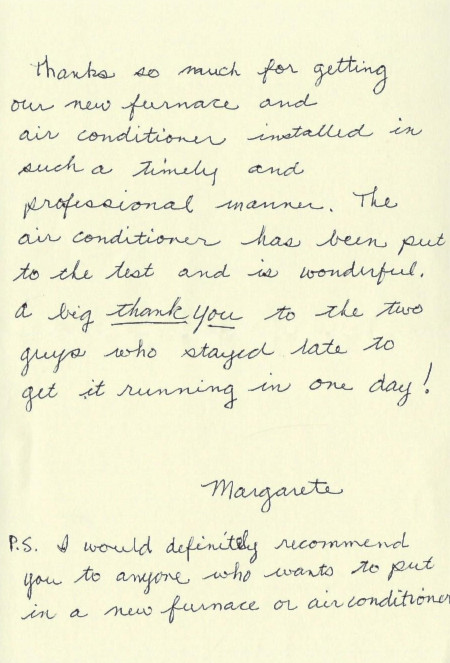 Thanks so much for getting
our new furnace and
air conditioner installed in
such a timely and
professional manner. The
air conditioner has been put
to the test and is wonderful.
A big thank you to the two
guys who stayed late to
get it running in one day!
Margarete
P.S. I would definitely recommend
you to anyone who wants to put
in a new furnace or air conditioner